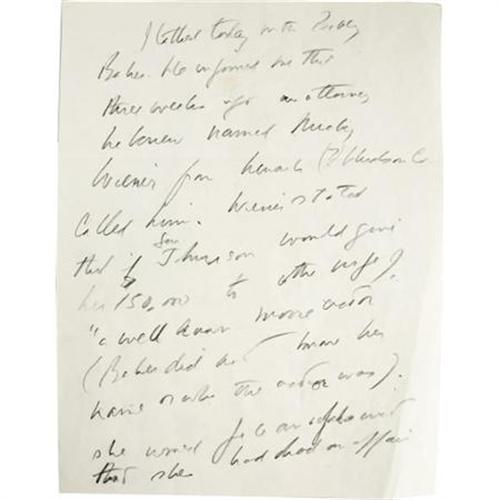 I talked today with Bobby
Baker. He informed me that
three weeks ago an attorney
he knew named Mickey
Weiner from Newark (? Hudson Co
called him. Weiner stated
that if Sen Thompson would give
her 150,000 to (the wife of
"a well known movie actor
(Baker did not know her
name or who the actor was).
she would file an affidavit
that she had had an affair